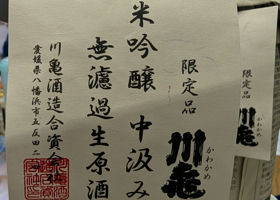 限定品
川亀
かわかめ
米吟醸 中汲み
無濾過生原酒
川亀酒造合資会社
愛媛県八幡浜市五反田二
限定品
川亀
かわかめ